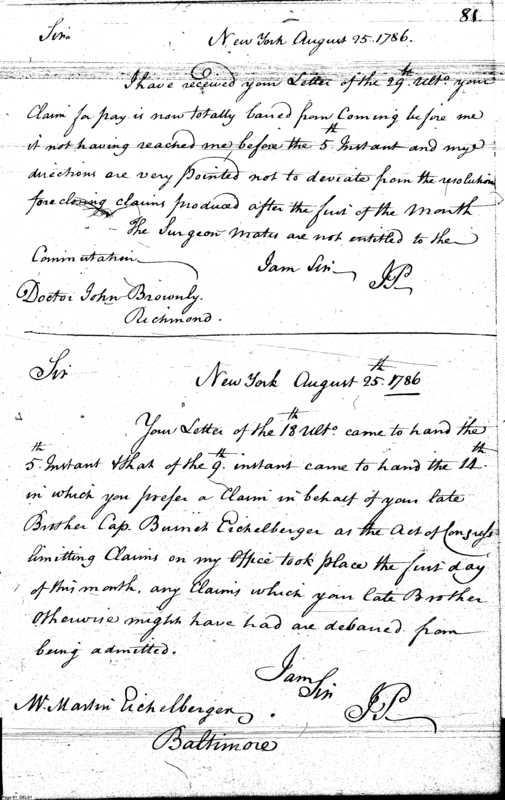 81
Sir
New York August 25. 1786.
I have received your Letter of the 29th. Ulto. your
Claim for pay is now totally barred from Coming before me
it not having reached me before the 5th Instant and my
directions are very Pointed not to deviate from the resolution
foreclosing claims produced after the first of the Month
The Surgeon Mates are not entitled to the
Commutation
I am Sir
JP
Doctor John Brownly.
Richmond.
Sir
New York August 25th. 1786
Your Letter of the 18th Ulto. came to hand the
5th. Instant & that of the 9th. instant came to hand the 14th.
in which you prefer a Claim in behalf of your late
Brother Cap. Burnet Eichelberger as the Act of Congress
limitting Claims on my Office took place the first day
of this month, any Claims which your late Brother
Otherwise might have had are debarred from
being admitted.
I am
Sir
JP
Mr. Martin Eichelberger.
Baltimore